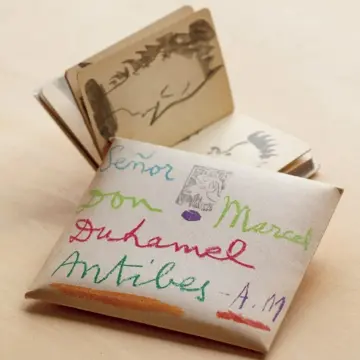 Señor
Don Marcel
Duhamel
Antibes - A.M